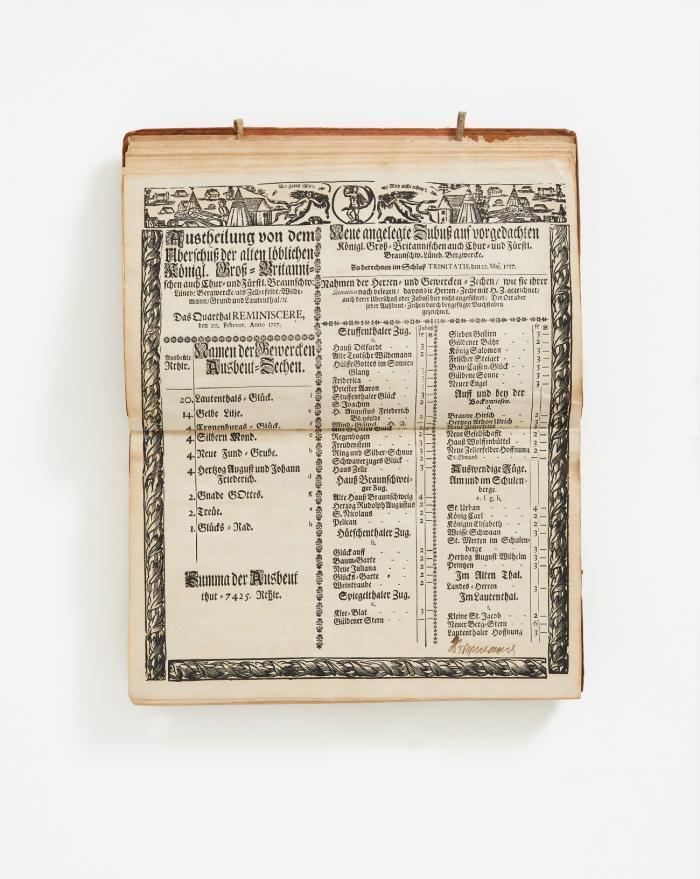 Wer Zubuß schreit
Wird nicht erfreut
Austheilung von dem
Uberschuß der alten löblichen
Königl. Groß-Britanni-
schen auch Chur- und Fürstl. Braunschw.
Lüneb. Bergwercke als Zellerfeldt/Wilde-
mann/Grund und Lautenthal/ec.
Das Quarthal REMINISCERE,
den 20. Februar. ANNO 1717.
Ausbeute
Rthlr.
Namen der Gewercken
Ausbeut-Zechen.
20. Lautenthals-Glück.
14. Gelbe Lilje.
4. Cronenburgs-Glück.
4. Silbern Mond.
4. Neue Fund-Grube.
4. Hertzog August und Johann
Friederich.
2. Gnade GOttes.
2. Treüe.
1. Glücks-Rad.
Summa der Ausbeut
thut - 7425. Rthlr.
Neue angelegte Zubuß auf vorgedachten
Königl. Groß-Britannischen auch Chur- und Fürstl.
Braunschw. Lüneb. Bergwercke.
Zu berechnen im Schluß TRINITATIS, den 22. Maj. 1717.
Nahmen der Herren- und Gewercken-Zechen/ wie sie ihrer
nach belegen/ davon die Herren-Zeche mit H. Z. gezeichnet/
auch derer Uberschuß oder Zubuß hier nicht angeführet: Der Ort aber
jeder Außbeut-Zechen durch beygefügte Buchstaben
gezeichnet.
Stuffenthaler Zug.
a.
Hauß Ditfurdt
Alte Teutsche Wildemann
HülffeGottes im Sonnen
Glantz
Friderica
Priester Aaron
Stuffenthaler Glück
S. Joachim
H. Augustus Friederich
Regenbogen
Freudenstein
Ring und Silber-Schnur
Schwanerzuges Glück
Haus Zelle
Hauß Braunschwei-
ger Zug.
Alte Hauß Braunschweig 4
Hertzog Rudolph Augustus 2
S. Nicolaus 2
Pelican 2
Hütschenthaler Zug.
b.
Glück auff 2
Baum-Garte 2
Neue Juliana 2
Glücks-Garte 2
Weintraube 2
Spiegelthaler Zug.
c.
Klee-Blat 3
Güldener Stern
Sieben Gestirn 3
Güldener Bähr 2
König Salomon 3
Frischer Steiger 3
Bau-Cassen-Glück 3
Güldene Sonne 3
Neuer Engel 3
Auff und bey der
Bockswiesen.
d.
Braune Hirsch 2
Hertzog Anthon Ulrich
Neue Gesellschafft 2
Hauß Wolffenbüttel 2
Neue Zellerfelder Hoffnung 2
St. Edmund
Auswendige Züge.
Am und im Schulen-
berge.
e. f. g. h.
St Urban 4
König Carl 2
Königin Elisabeth 2
Weisse Schwaan 3
St. Merten im Schulen-
berge 3
Hertzog August Wilhelm 3
Printzen 3
Im Alten Thal.
Landes-Herren 3
Im Lautenthal.
i.
Kleine St. Jacob 2
Neuer Berg-Stern 6
Lautenthaler Hoffnung 3